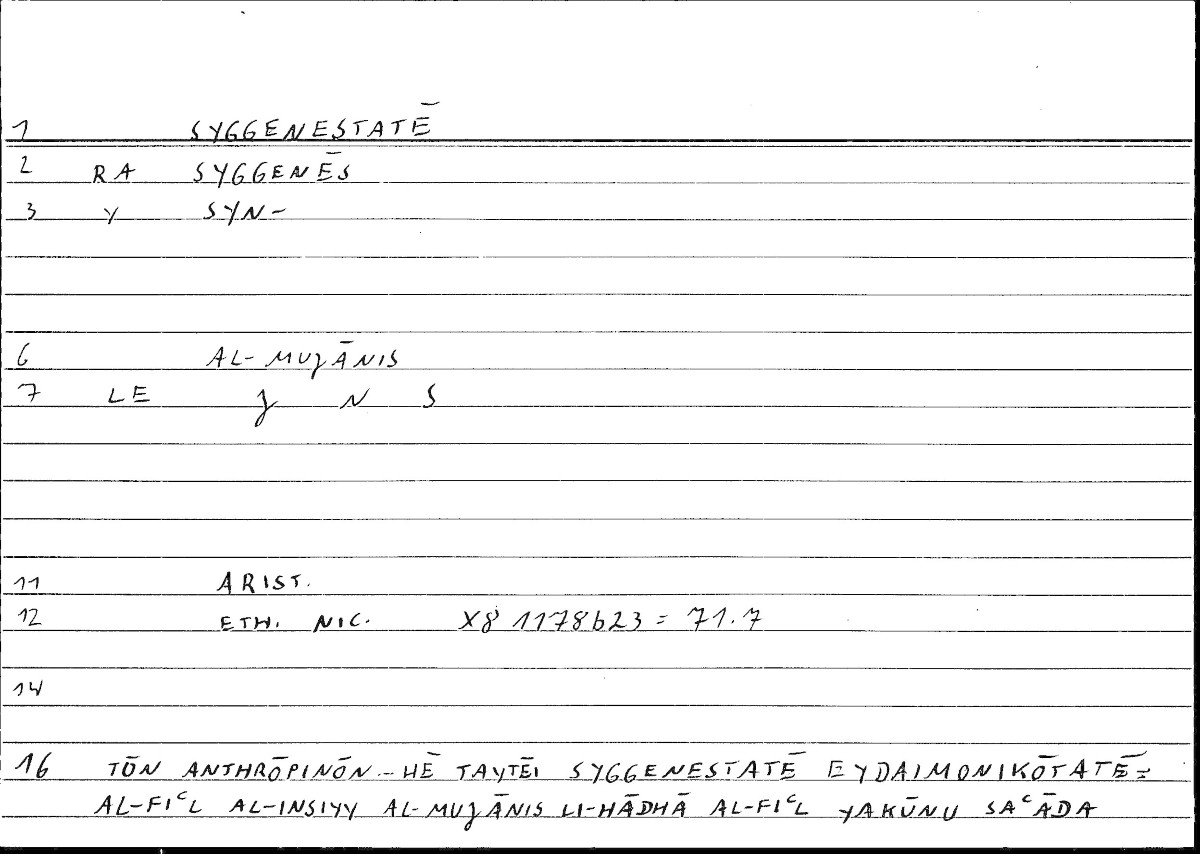 1 SYGGENESTATĒ
2 RA SYGGENĒS
3 Y SYN-
6 AL-MUǧĀNIS
7 LE ǧ N S
11 ARIST.
12 ETH. NIC. X8 1178b23 = 71.7
14
16 TŌN ANTHRŌPINŌN - HĒ TAYTĒI SYGGENESTATĒ EYDAIMONIKŌTATĒ =
AL-FIᶜL AL-INSIYY AL-MUǧĀNIS LI-HĀDHĀ AL-FIᶜL YAKŪNU SAᶜĀDA